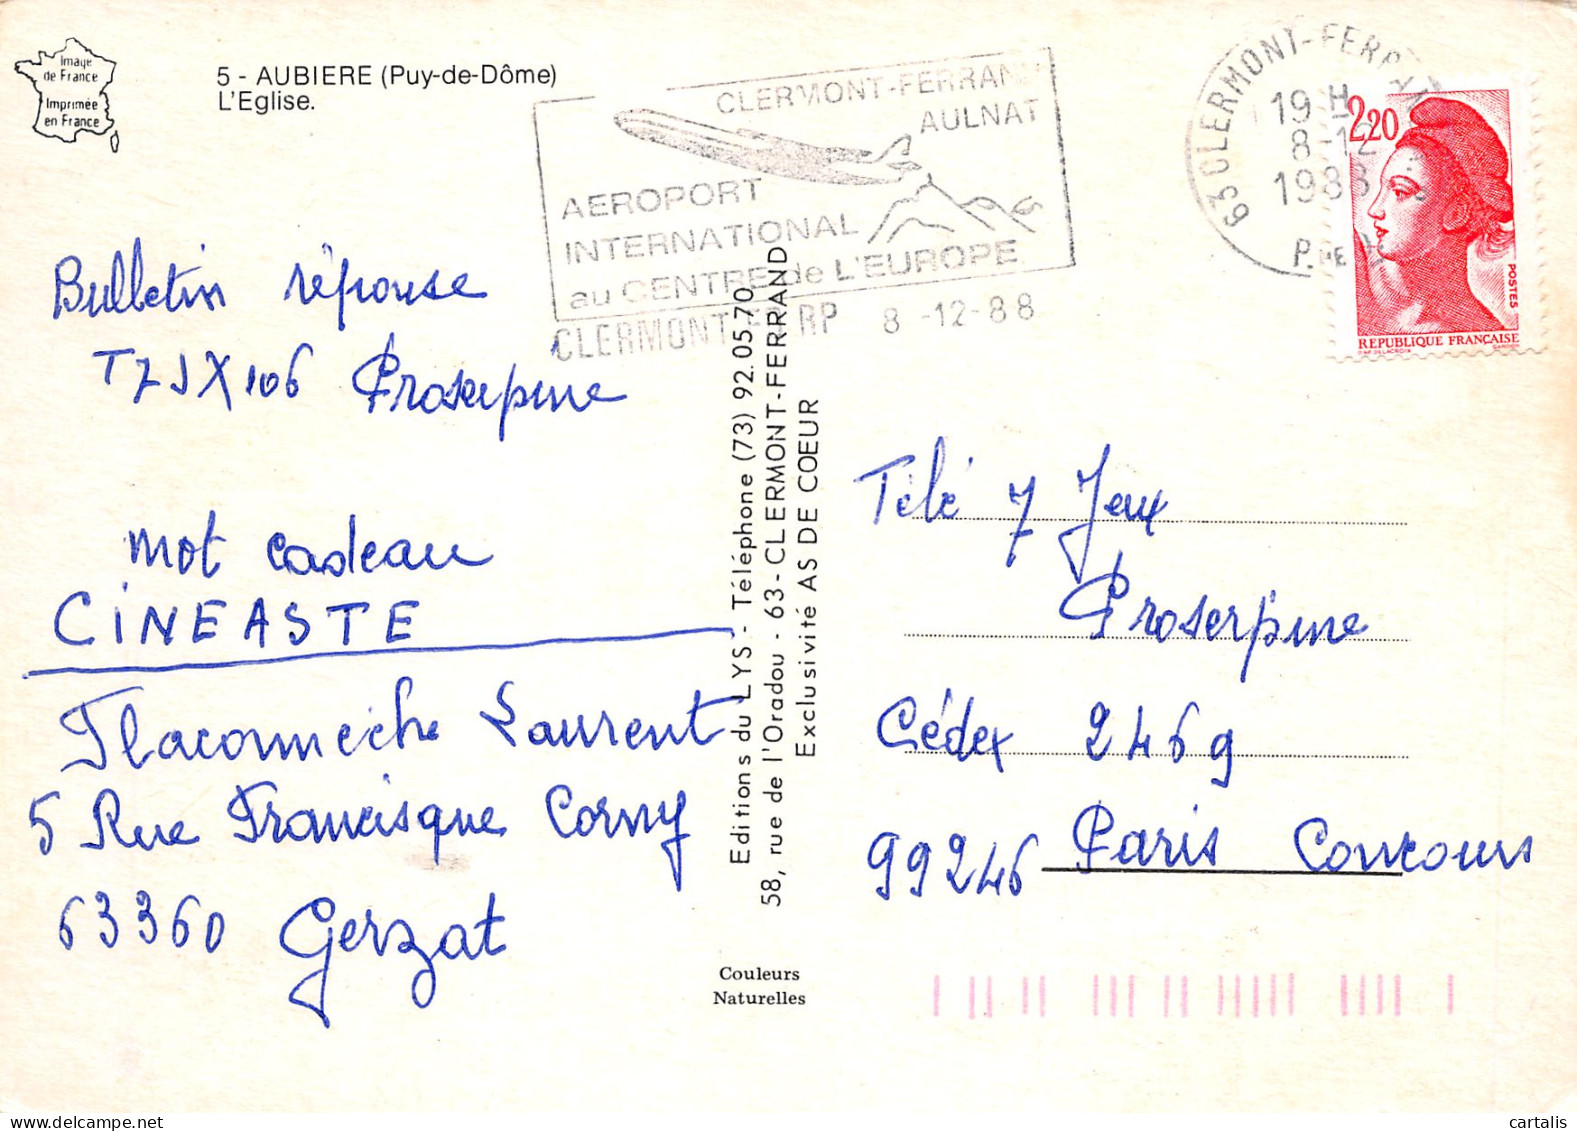 Image
de France
Imprimée
en France
5 - AUBIERE (Puy-de-Dôme)
L'Eglise.
CLERMONT-FERRAND
AULNAT
AEROPORT
INTERNATIONAL
au CENTRE de L'EUROPE
CLERMONT FD RP 8 -12-88
63 CLERMONT-FERRAND
19 H
8-12
1988
P. DE D
2,20
POSTES
REPUBLIQUE FRANÇAISE
D'AP. DELACROIX GANDON
Bulletin réponse
T7JX106 Proserpine
mot cadeau
CINEASTE
Flaconnèche Laurent
5 Rue Francisque Corny
63360 Gerzat
Editions du LYS - Téléphone (73) 92.05.70
58, rue de l'Oradou - 63 - CLERMONT-FERRAND
Exclusivité AS DE COEUR
Couleurs
Naturelles
Télé 7 Jeux
Proserpine
Cédex 2469
99246 Paris Concours
cartalis